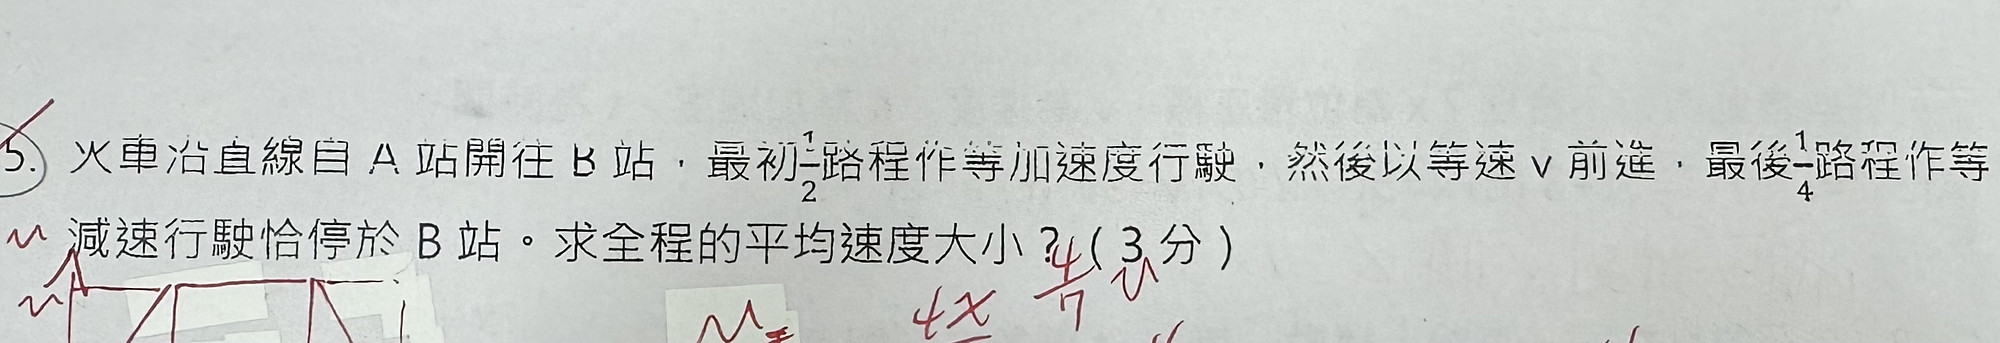 5. 火車沿直線自 A 站開往 B 站，最初1/2路程作等加速度行駛，然後以等速 v 前進，最後1/4路程作等
減速行駛恰停於 B 站。求全程的平均速度大小？(3分)
4/7 v
4x